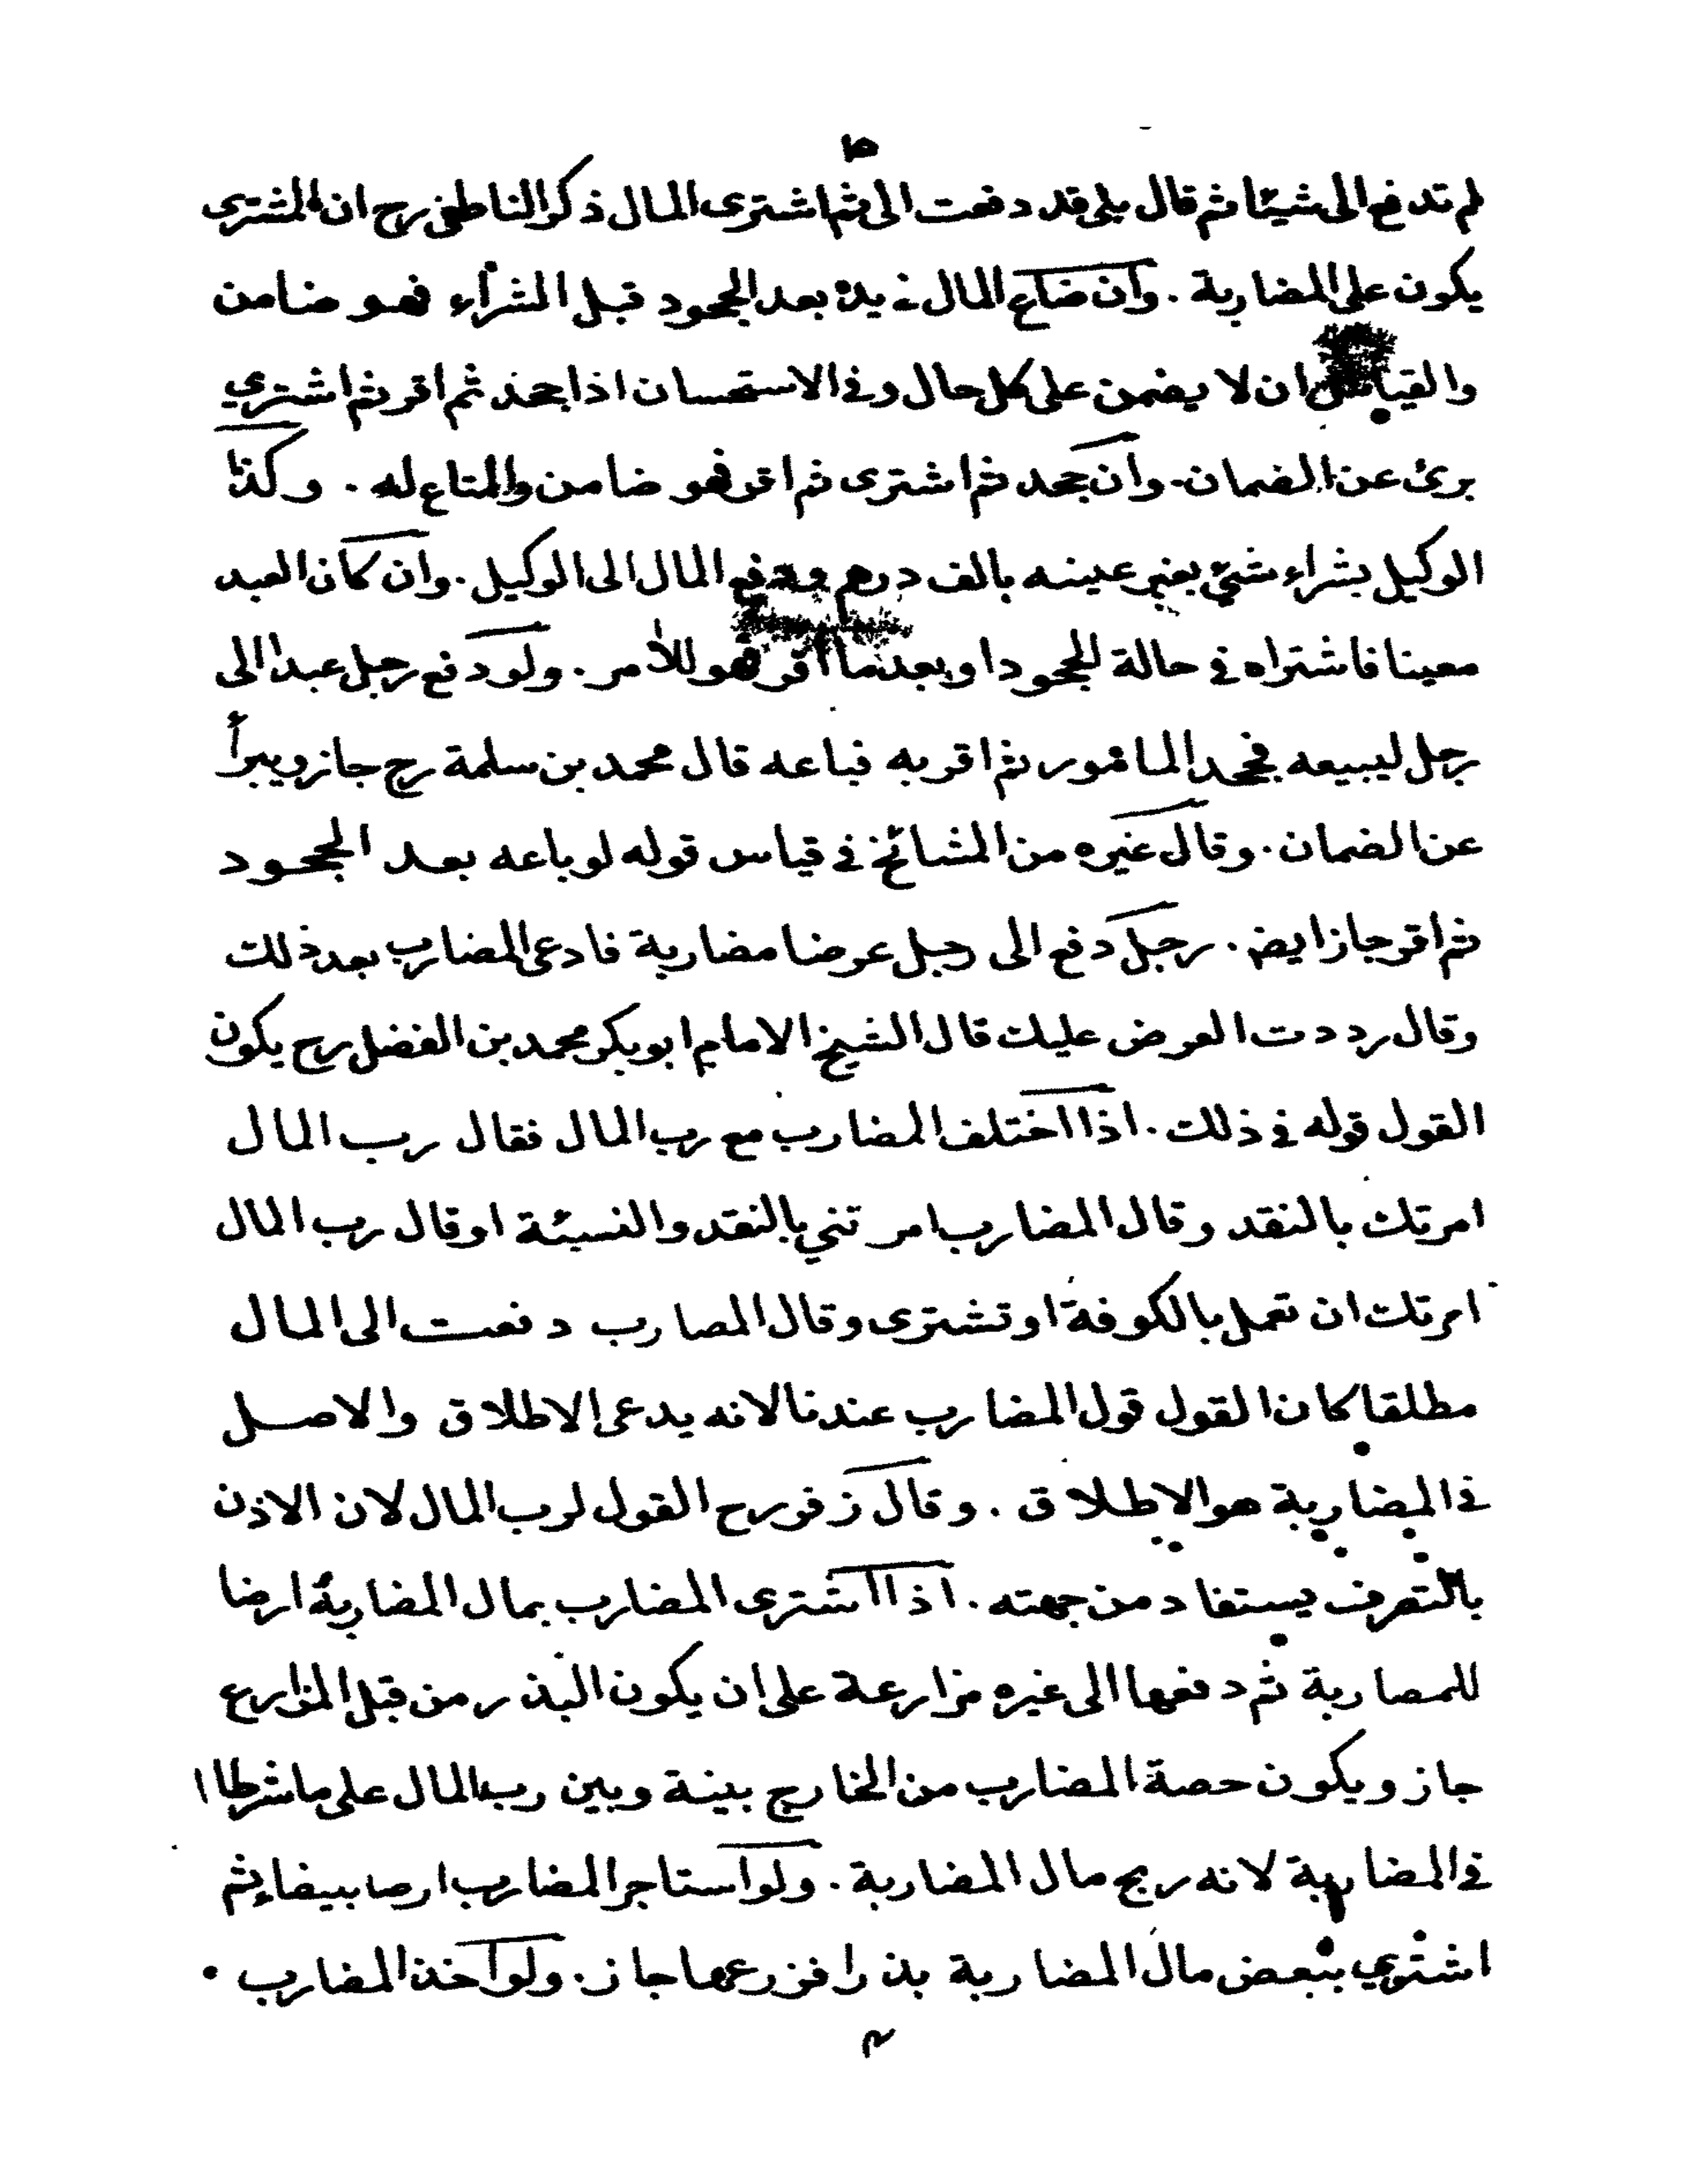 ١٥
لم تدفع الى شيئا ثم قال بلى قد دفعت الى ثم اشترى المال ذكر الناطفى رح ان المشترى
يكون على المضاربة . وان ضاع المال فى يده بعد الجحود قبل الشراء فهو ضامن
والقياس ان لا يضمن على كل حال وفى الاستحسان اذا جحد ثم اقر ثم اشترى
برئ عن الضمان . وان جحد ثم اشترى ثم اقر فهو ضامن والمتاع له . وكذا
الوكيل بشراء شئ بغير عينه بالف درهم ودفع المال الى الوكيل . وان كان العبد
معينا فاشتراه فى حالة الجحود او بعد ما اقر فهو للأمر . ولو دفع رجل عبدا الى
رجل ليبيعه فجحد المامور ثم اقر به فباعه قال محمد بن سلمة رح جاز ويبرأ
عن الضمان . وقال غيره من المشائخ فى قياس قوله لو باعه بعد الجحود
ثم اقر جاز ايض . رجل دفع الى رجل عرضا مضاربة فادعى المضارب بعد ذلك
وقال رددت العرض عليك قال الشيخ الامام ابو بكر محمد بن الفضل رح يكون
القول قوله فى ذلك . اذا اختلف المضارب مع رب المال فقال رب المال
امرتك بالنقد وقال المضارب امرتني بالنقد والنسيئة او قال رب المال
امرتك ان تعمل بالكوفة او تشترى وقال المصارب دفعت الى المال
مطلقا كان القول قول المضارب عندنا لانه يدعى الاطلاق والاصل
فى المضاربة هو الاطلاق . وقال زفر رح القول لرب المال لان الاذن
بالتصرف يستفاد من جهته . اذا اشترى المضارب بمال المضاربة ارضا
للمصاربة ثم دفعها الى غيره مزارعة على ان يكون البذر من قبل المزارع
جاز ويكون حصة المضارب من الخارج بينة وبين رب المال على ما شرطا ا
فى المضاربة لانه ربح مال المضاربة . ولو استاجر المضارب ارصا بيضاء ثم
اشتري ببعض مال المضاربة بذرا فزرعها جاز . ولو اخذ المضارب